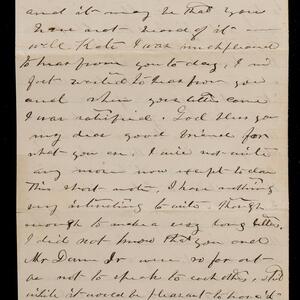 and it may be that you
have not heard of it
well Kate I was much pleased
to hear from you to day, I
just wanted to hear from you
and when your letter came
I was satisfied. God bless you
my dear good friend for
what you are. I will not write
any more now except to close
this short note, I have nothing
very interesting to write though
enough to make a very long letter.
I did not know that you and
Mr Jr were so far out
as not to speak to each other,
while it would be pleasant to have it